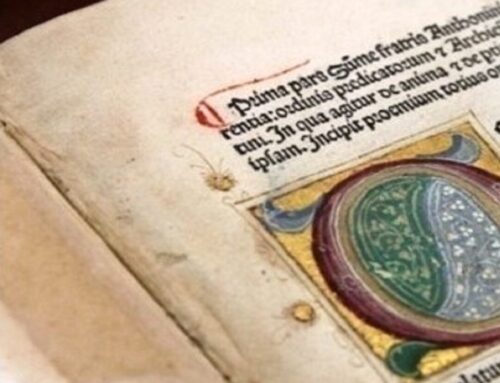 Prima pars Sūme fratris Anthonin
rentia: ordinis predicatorum ⁊ Archie
tini. In qua agitur de anima ⁊ de
ipsam. Incipit proemium totius